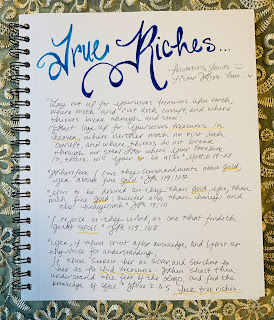 True Riches...
"Lay not up for yourselves treasures upon earth,
where moth and rust doth corrupt, and where
thieves break through and steal:
But lay up for yourselves treasures in
heaven, where neither moth nor rust doth
corrupt, and where thieves do not break
through nor steal: For where your treasure
is, there will your be also." Matt. 6:19-21
"Therefore I love thy commandments above gold;
yea, above fine gold." Ps. 119:127
"More to be desired are they than gold, yea, than
much fine gold: sweeter also than honey and
the honeycomb." Ps. 19:10
"I rejoice at thy word, as one that findeth
great spoil." Ps. 119:162
"Yea, if thou criest after knowledge, and liftest up
thy voice for understanding;
If thou seekest her as silver, and searchest for
her as for hid treasures; Then shalt thou
understand the fear of the LORD, and find the
knowledge of God." Prov. 2:3-5
True riches...